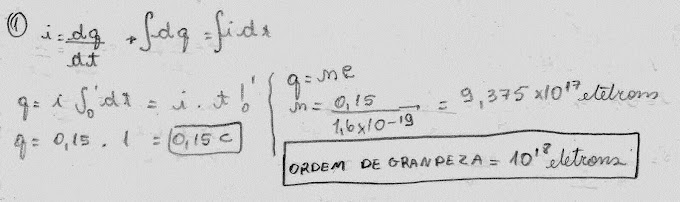 ① i = dq/dt → ∫dq = ∫i dt
q = i ∫₀¹ dt = i . t |₀¹
q = 0,15 . 1 = 0,15 C
q = ne
n = 0,15 / 1,6x10-19 = 9,375 x10¹⁷ elétrons
ORDEM DE GRANDEZA = 10¹⁸ eletrons